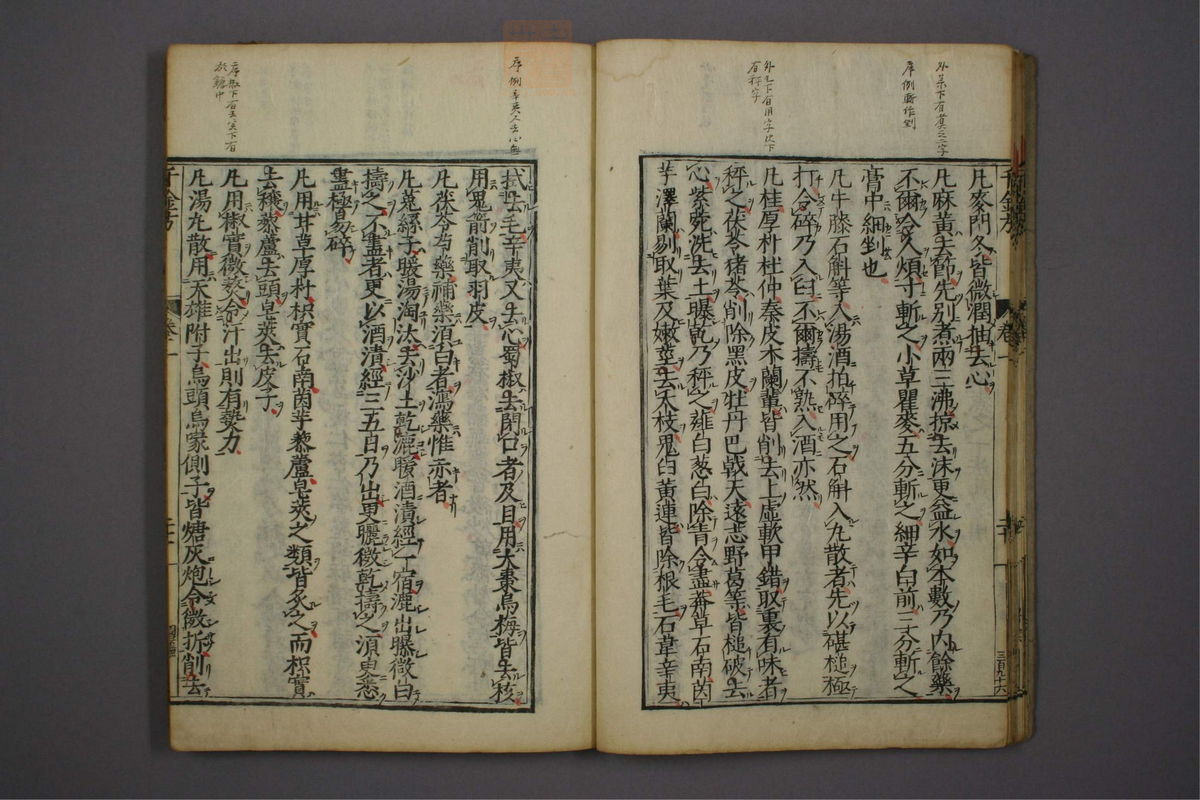 凡麥門冬皆微潤抽去心
凡麻黃去節先別煮兩三沸掠去沫更益水如本數乃內餘藥
不爾令人煩寸斬之小草瞿麥五分斬之細辛白前三分斬之
膏中細剉也
凡牛膝石斛等入湯酒拍碎用之石斛入丸散者先以碪槌極
打令碎乃入臼不爾擣不熟入酒亦然
凡桂厚朴杜仲秦皮木蘭輩皆削去上虛軟甲錯取裏有味者
秤之茯苓猪苓削除黑皮牡丹巴戟天遠志野葛等皆槌破去
心紫菀洗去土曝乾乃秤之薤白葱白除青令盡莽草石南茵
芋澤蘭剔取葉及嫩莖去大枝鬼臼黃連皆除根毛石韋辛夷
拭去毛辛夷又去心蜀椒去閉口者及目用大棗烏梅皆去核
用鬼箭削取羽皮
凡茯苓芍藥補藥須白者瀉藥惟赤者
凡菟絲子暖湯淘汰去沙土乾漉暖酒漬經一宿漉出曝微白
擣之不盡者更以酒漬經三五日乃出更曬微乾擣之須臾悉
盡極易碎
凡用甘草厚朴枳實石南茵芋藜蘆皂莢之類皆炙之而枳實
去穰藜蘆去頭皂莢去皮子
凡用椒實微熬令汗出則有勢力
凡湯丸散用天雄附子烏頭烏喙側子皆煻灰炮令微拆削去
千金方
卷一
三百九十六
外葉下有蓂之二字
序例斬作剉
外上下有用字
有秤字